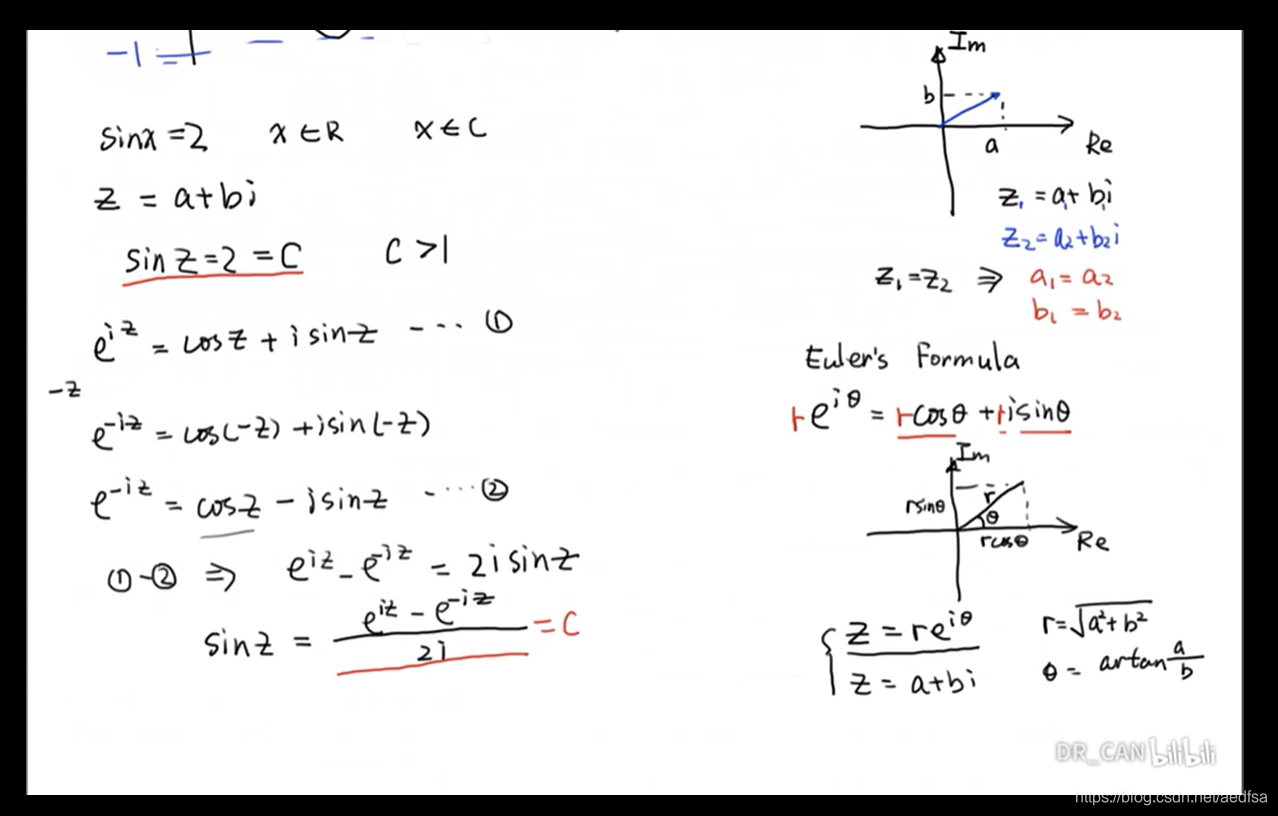 -1
sinx=2 x∈R x∈C
z = a+bi
sinz=2=C C>1
e^{iz} = cosz + isinz --- ①
-z
e^{-iz} = cos(-z) + isin(-z)
e^{-iz} = cosz - isinz ---- ②
①-② ⇒ e^{iz} - e^{-iz} = 2isinz
sinz = \frac{e^{iz} - e^{-iz}}{2i} = C
Im
b
a Re
z₁ = a₁+b₁i
z₂=a₂+b₂i
z₁=z₂ ⇒ a₁=a₂
b₁=b₂
Euler's Formula
re^{iθ} = rcosθ + risinθ
Im
rsinθ r
θ
rcosθ Re
z = re^{iθ} r=√(a²+b²)
z = a+bi θ = artan\frac{a}{b}
DR_CAN bilibili
https://blog.csdn.net/aedfsa